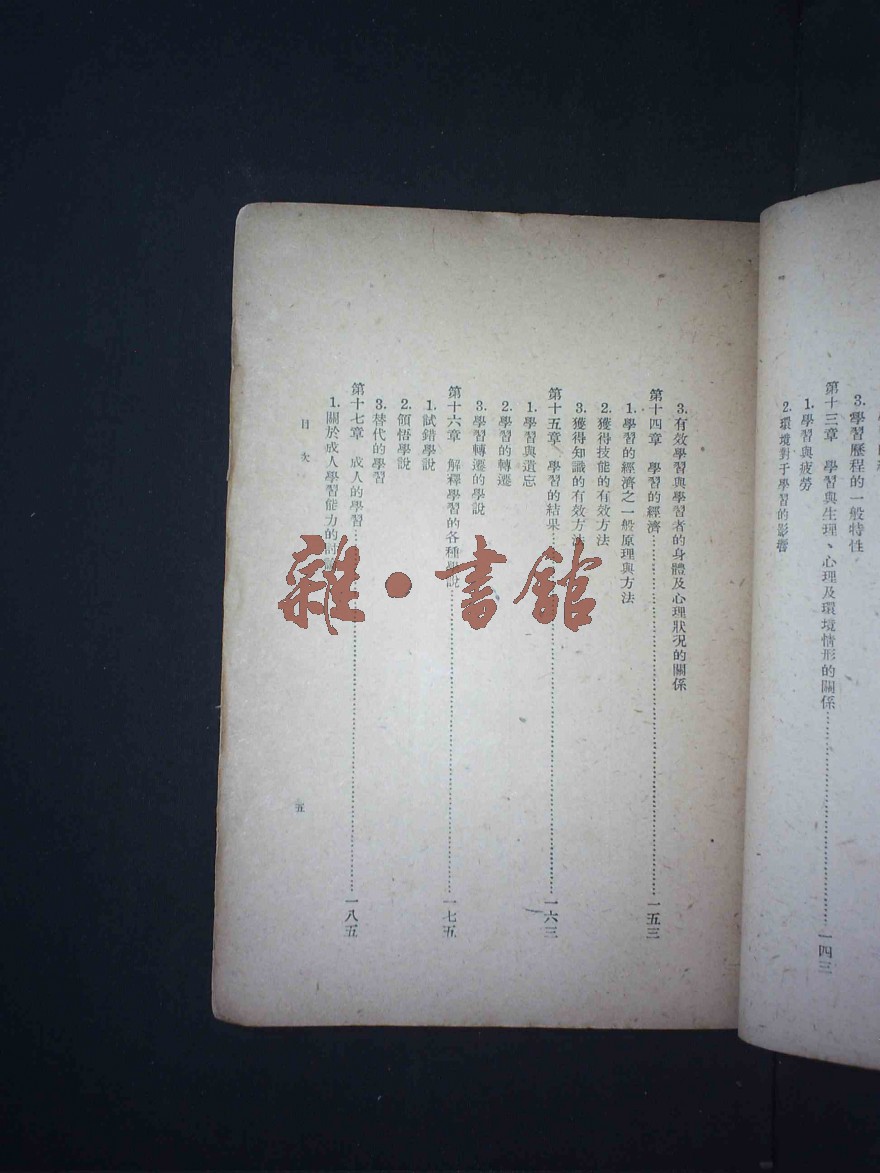 3. 學習歷程的一般特性
第十三章　學習與生理、心理及環境情形的關係……一四三
1. 學習與疲勞
2. 環境對于學習的影響
3. 有效學習與學習者的身體及心理狀况的關係
第十四章　學習的經濟……一五三
1. 學習的經濟之一般原理與方法
2. 獲得技能的有效方法
3. 獲得知識的有效方法
第十五章　學習的結果……一六三
1. 學習與遺忘
2. 學習的轉遷
3. 學習轉遷的學說
第十六章　解釋學習的各種學說……一七五
1. 試錯學說
2. 領悟學說
3. 替代的學習
第十七章　成人的學習……一八五
1. 關於成人學習能力的討論
目次
五
雜·書館